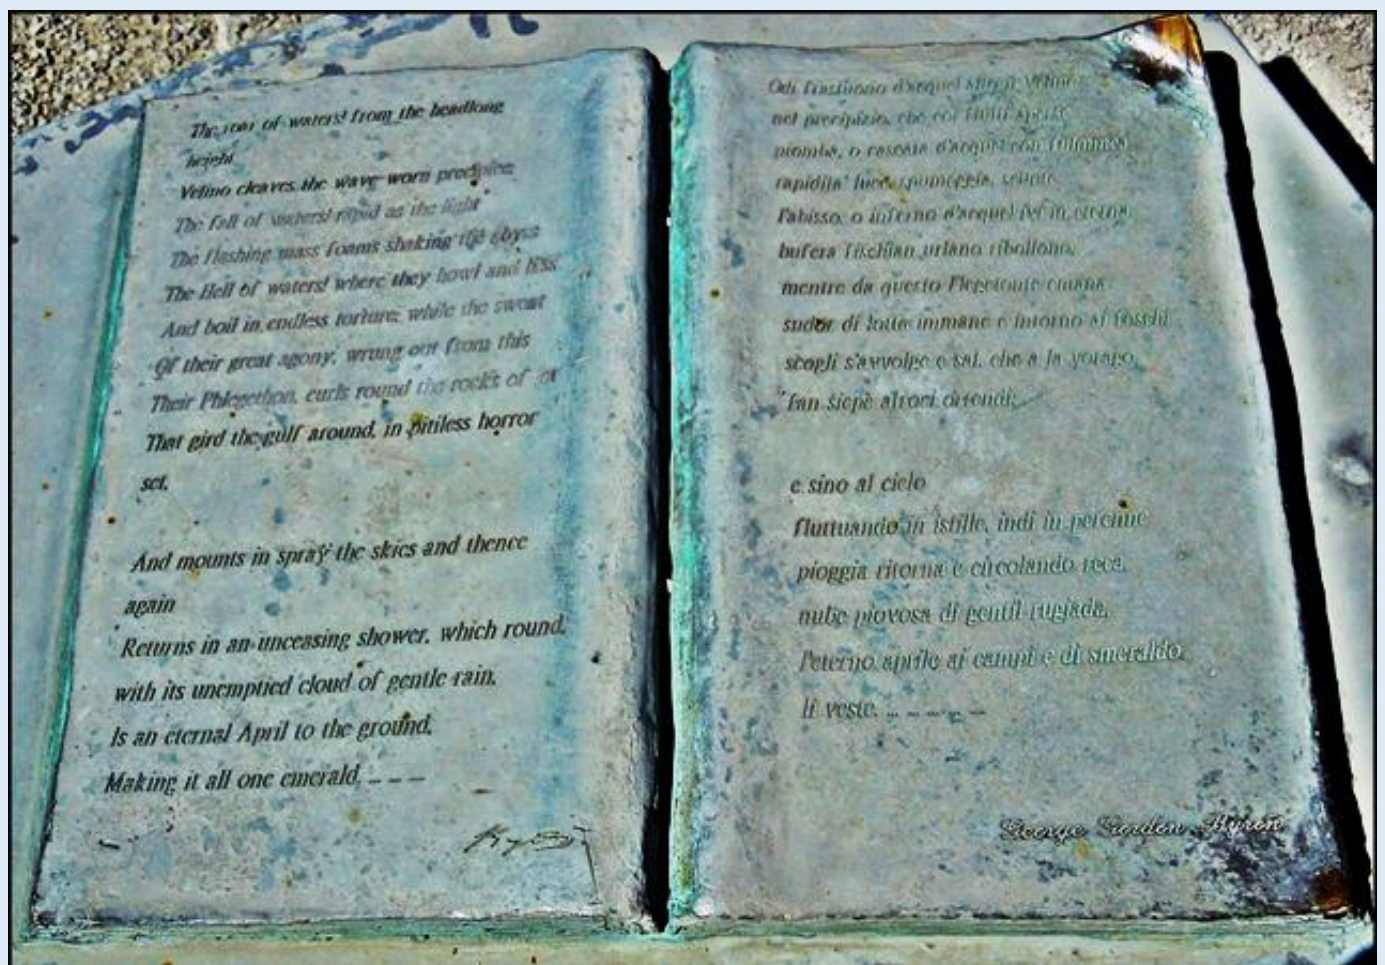 The roar of waters! from the headlong
height
Velino cleaves the wave-worn precipice
The fall of waters! rapid as the light
The flashing mass foams shaking the abyss
The Hell of waters! where they howl and hiss
And boil in endless torture; while the sweat
Of their great agony, wrung out from this
Their Phlegethon, curls round the rocks of
That gird the gulf around, in pitiless horror
set,
And mounts in spray the skies and thence
again
Returns in an unceasing shower, which round,
with its unemptied cloud of gentle rain,
Is an eternal April to the ground,
Making it all one emerald, _ _ _
Byron
Odi frastuono d'acque! Velino
nel precipizio, che coi flutti
piomba, o cascata d'acque! con
rapidita' luce, spumeggia, scuote
l'abisso, o inferno d'acque! ive in eterna
bufera fischian urlano ribollono,
mentre da questo Flegetonte emana
sudor di lotta immane e intorno ai foschi
scogli s'avvolge e sal, che a la vorago,
fan siepe atroci orrendi;
e sino al cielo
fluttuando in istille, indi in perenne
pioggia ritorna e circolando reca,
nube piovosa di gentil rugiada,
l'eterno aprile ai campi e di smeraldo,
li veste. _ _ _ _ _
George Gordon Byron